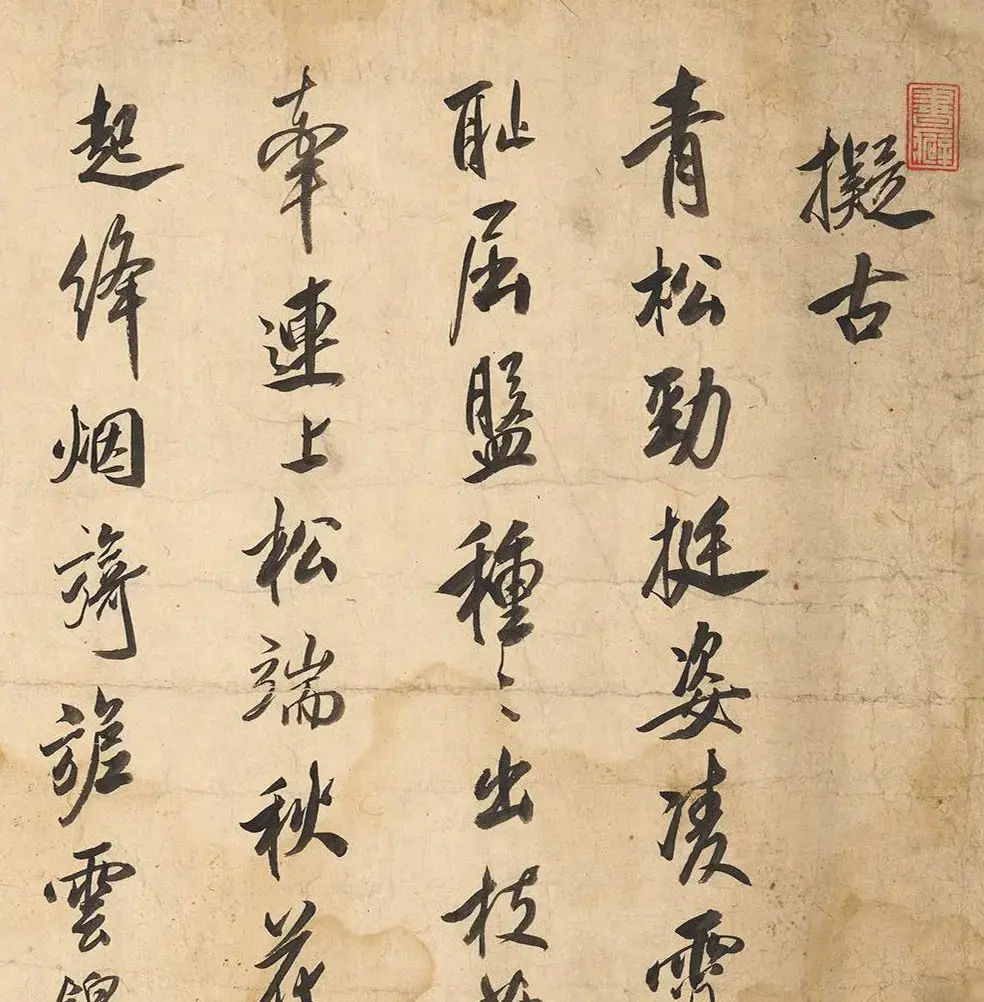 書癖
擬古
青松勁挺姿凌霄
耻屈盤種〻出枝
牽連上松端秋花
起絳烟旖旎雲錦